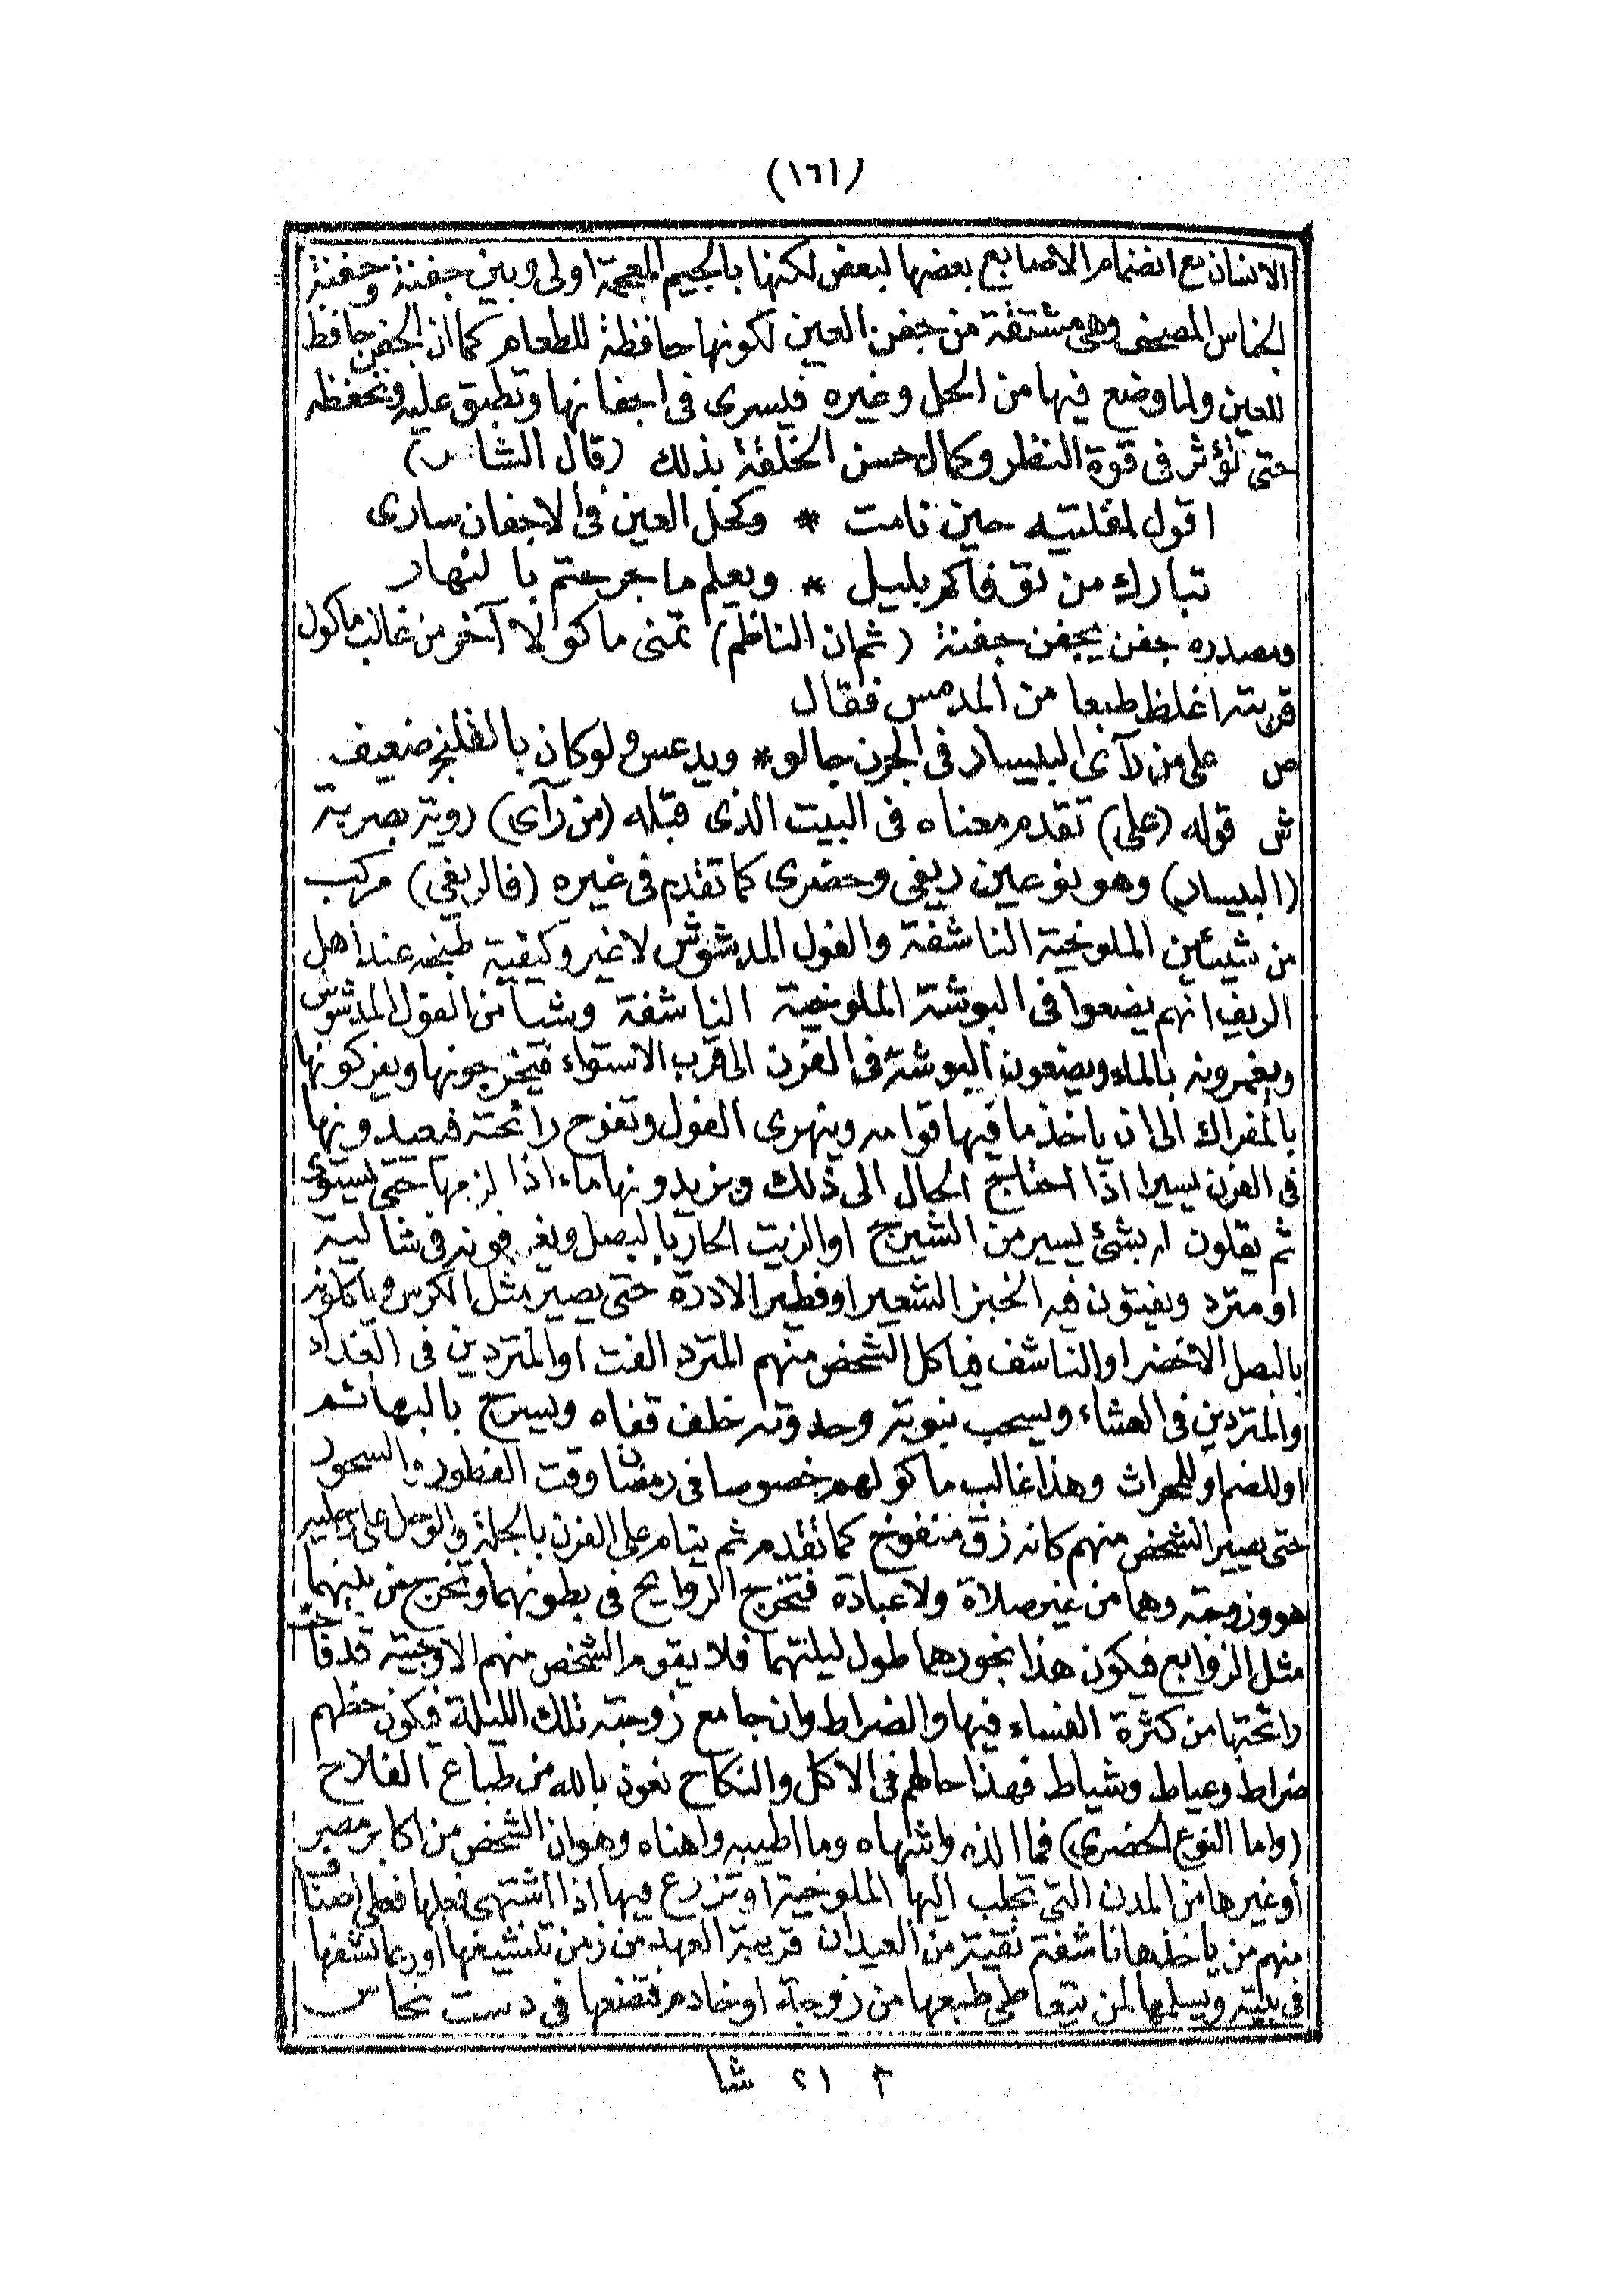 (١٦١)
الانسان مع انضمام الاصابع بعضها لبعض لكنها بالجيم المعجمة اولى وبين جفنة وحفنة
الجناس المصحف وهى مشتقة من جفن العين لكونها حافظة للطعام كما ان الجفن حافظ
للعين ولما وضع فيها من الكحل وغيره فيسرى فى اجفانها وتطبق عليه وتحفظه
حتى تؤثر فى قوة النظر وكمال حسن الخلقة بذلك (قال الشاعر)
اقول لمقلتيه حين نامت * وكحل العين فى الاجفان سارى
تبارك من توفاكم بليل * ويعلم ما جرحتم بالنهار
ومصدره جفن يجفن جفنة (ثم ان الناظم) تمنى ماكولا آخر من غالب ماكول
قريته اغلظ طبعا من المدمس فقال
ص على من رآى البيسار فى الجرن جالو * ويدعس ولو كان بالفلنج ضعيف
ش قوله (على) تقدم معناه فى البيت الذى قبله (من رآى) روية بصرية
(البيسار) وهو نوعين ريفى وحضرى كما تقدم فى غيره (فالريفى) مركب
من شيئين الملوخية الناشفة والفول المدشوش لا غير وكيفية طبخه عند أهل
الريف انهم يضعوا فى البوشة الملوخية الناشفة وشيأ من الفول المدشوش
ويغمرونه بالماء ويضعون البوشة فى الفرن الى قرب الاستواء فيخرجونها ويفركونها
بالمفراك الى ان ياخذ ما فيها قوامه وينهرى الفول وتفوح رائحته فيعيدونها
فى الفرن يسيرا اذا احتاج الحال الى ذلك ويزيدونها ماء اذا لزمها حتى يستوى
ثم يقلون له بشئ يسير من الشيرج او الزيت الحار بالبصل ويغرفونه فى شالية
او مترد ويفتون فيه الخبز الشعير او فطير الادرة حتى يصير مثل الكرس وياكلونه
بالبصل الاخضر او الناشف فياكل الشخص منهم المترد الفت او المتردين فى الغداء
والمتردين فى العشاء ويسحب نبوته وحدوته خلف قفاه ويسرح بالبهائم
او للضم او للحراث وهذا غالب ماكولهم خصوصا فى رمضان وقت الفطور والسحور
حتى يصير الشخص منهم كانه زق منفوخ كما تقدم ثم ينام على الفرن بالجلة والوحل على
هو وزوجته وهما من غير صلاة ولا عبادة فتخرج الروايح فى بطونهما وتخرج من بينهما
مثل الزوابع فيكون هذا بخورهما طول ليلتهما فلا يقوم الشخص منهم الا وجبته قد فاحت
رائحتها من كثرة الفساء فيها والضراط وان جامع زوجته تلك الليلة فيكون حظهم
ضراط وعياط وشياط فهذا حالهم فى الاكل والنكاح نعوذ بالله من طباع الفلاح
(واما النوع الحضرى) فما الذه واشهاه وما اطيبه واهناه وهو ان الشخص من اكابر مصر
أو غيرها من المدن التى تجلب اليها الملوخية او تزرع فيها اذا اشتهى فعلها فعلى اصناف
منهم من ياخذها ناشفة نقية من العيدان قريبة العهد من زمن تنشيفها او ربما نشفها
فى بيته ويسلمها لمن يتعاطى طبعها من زوجة او خادم فتضعها فى دست نحاس
٢ ٢١ شا